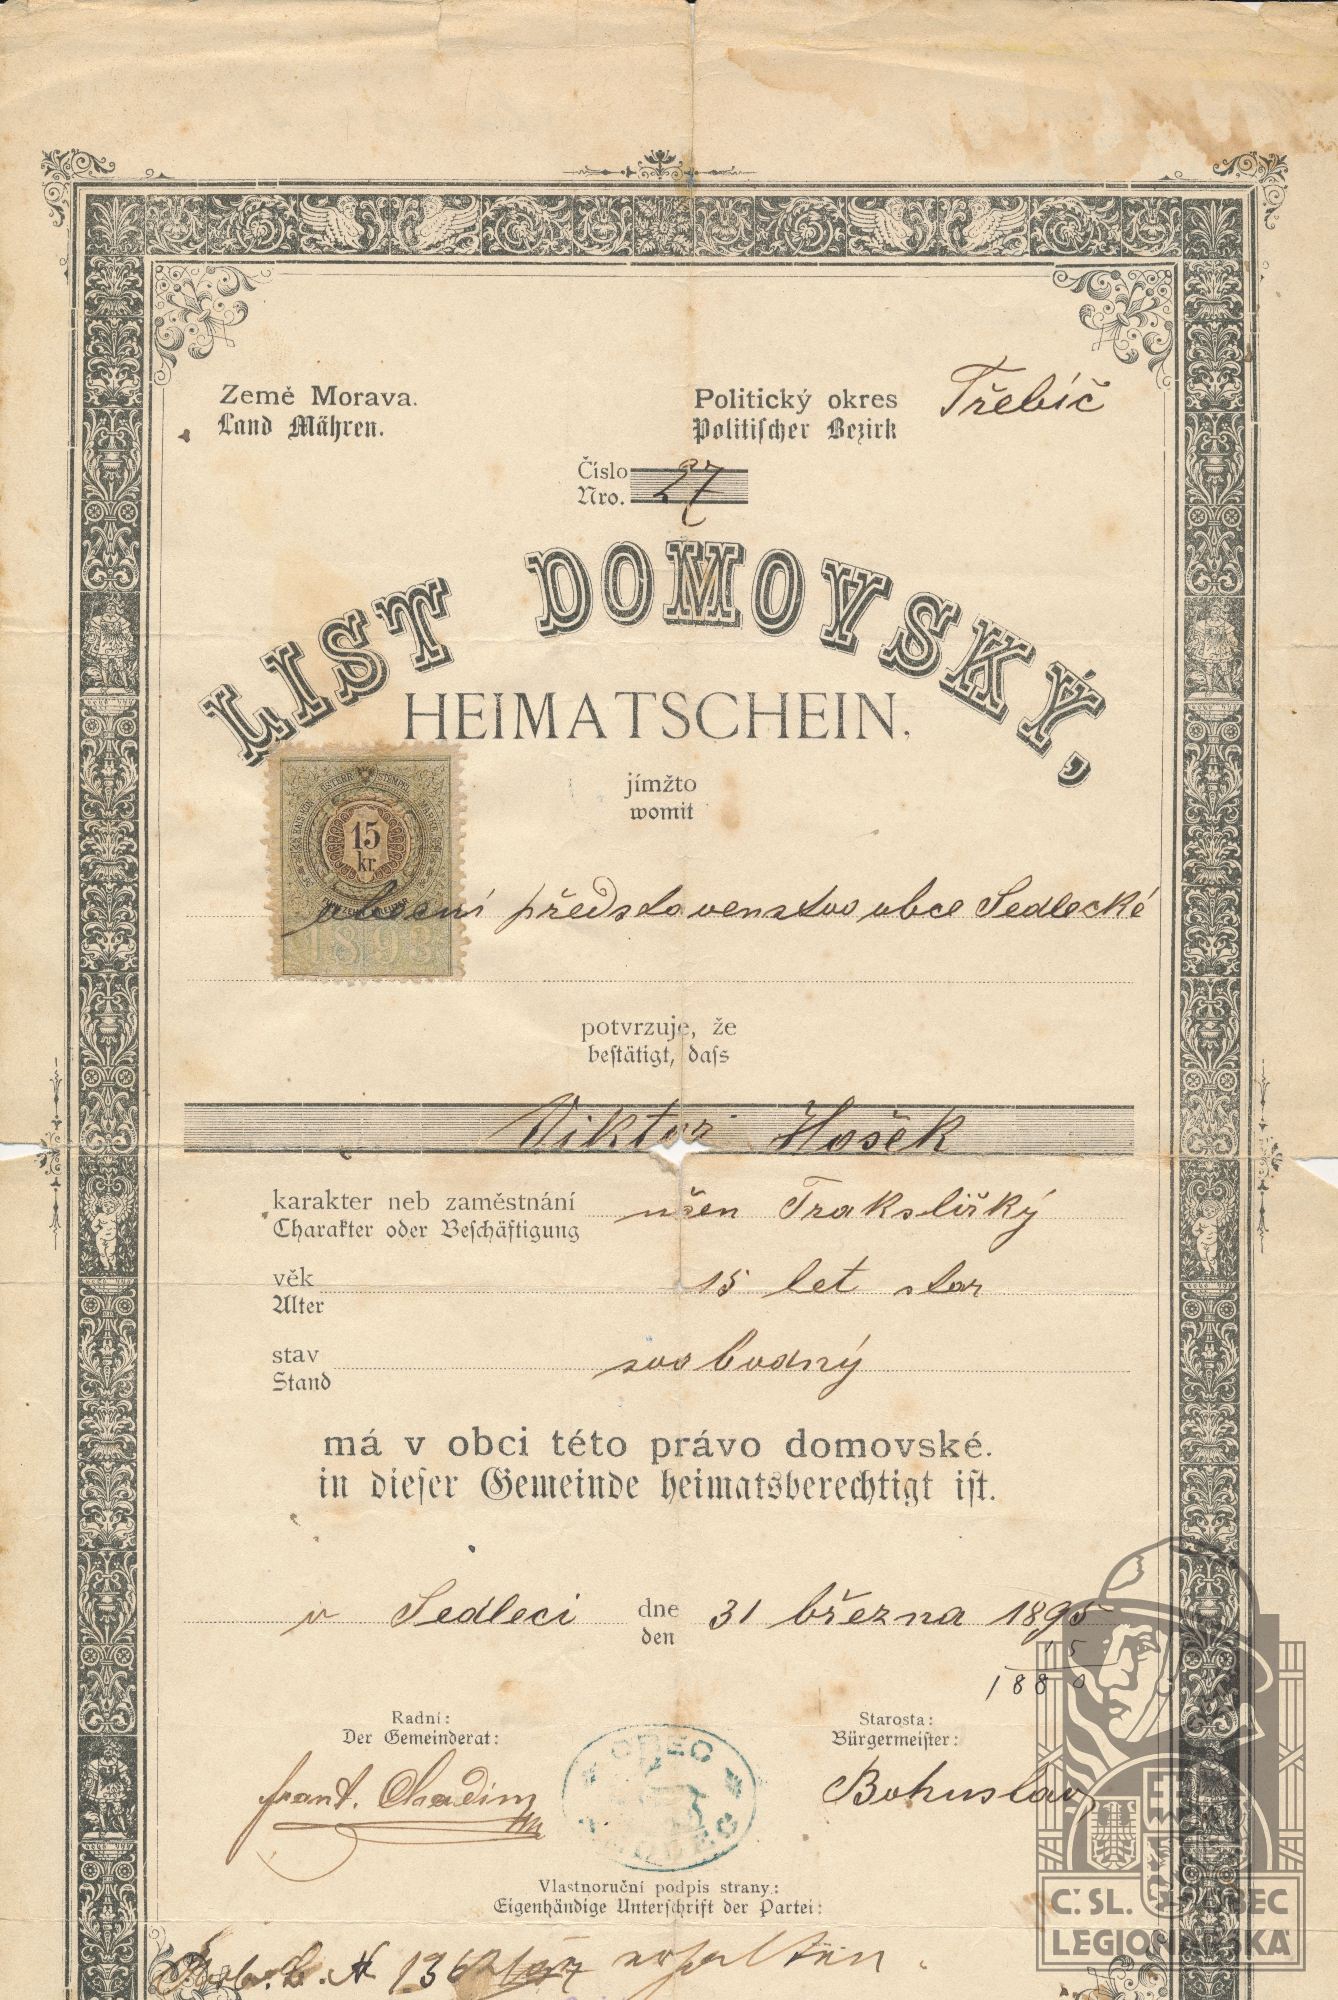 Země Morava.
Land Mähren.
Politický okres Třebíč
Politischer Bezirk
Číslo 27
Nro.
LIST DOMOVSKÝ,
HEIMATSCHEIN.
jímžto
womit
15
kr.
1893
obecní představenstvo obce Sedlecké
potvrzuje, že
bestätigt, dass
Viktor Hošek
karakter neb zaměstnání učen Trakslířký
Charakter oder Beschäftigung
věk 15 let star
Alter
stav svobodný
Stand
má v obci této právo domovské.
in dieser Gemeinde heimatsberechtigt ist.
v Sedleci dne 31 března 1895
den
15
1880
Radní:
Der Gemeinderat:
Starosta:
Bürgermeister:
frant. Chadim
Bohuslav
OBEC
SEDLEC
Vlastnoruční podpis strany:
Eigenhändige Unterschrift der Partei:
Č.SL. OBEC
LEGIONÁŘSKÁ